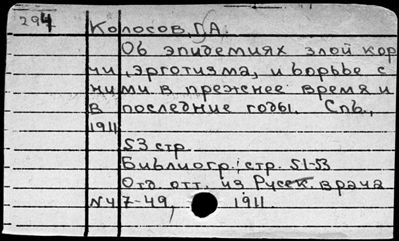 294
Колосов, Г.А.
Об эпидемиях злой кор
чи, эрготизма, и борьбе с
ними в прежнее время и
в последние годы. Спб.,
1911
53 стр.
Библиогр.: стр. 51-53
Отд. отт. из Русск. врача
N47-49, 1911.